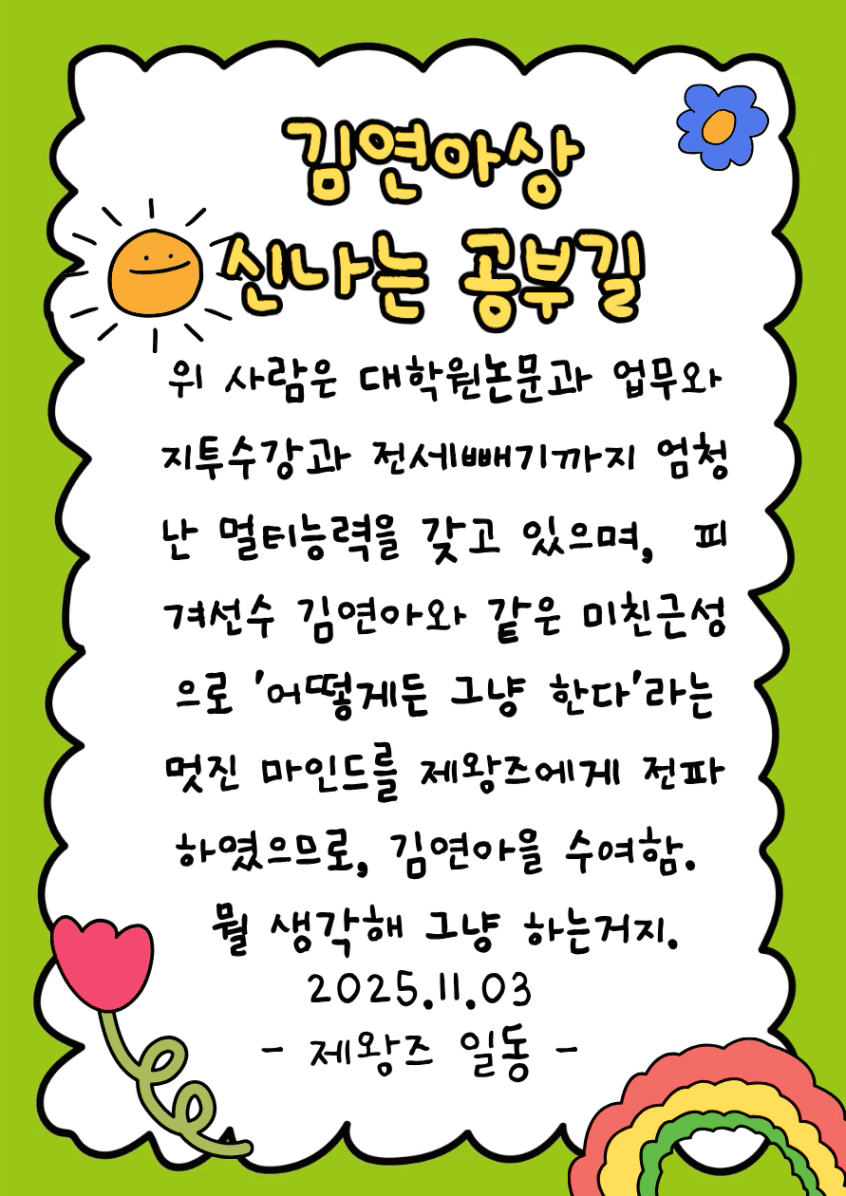 김연아상
신나는 공부길
위 사람은 대학원논문과 업무와
지투수강과 전세빼기까지 엄청
난 멀티능력을 갖고 있으며, 피
겨선수 김연아와 같은 미친근성
으로 '어떻게든 그냥 한다'라는
멋진 마인드를 제왕즈에게 전파
하였으므로, 김연아을 수여함.
뭘 생각해 그냥 하는거지.
2025.11.03
- 제왕즈 일동 -